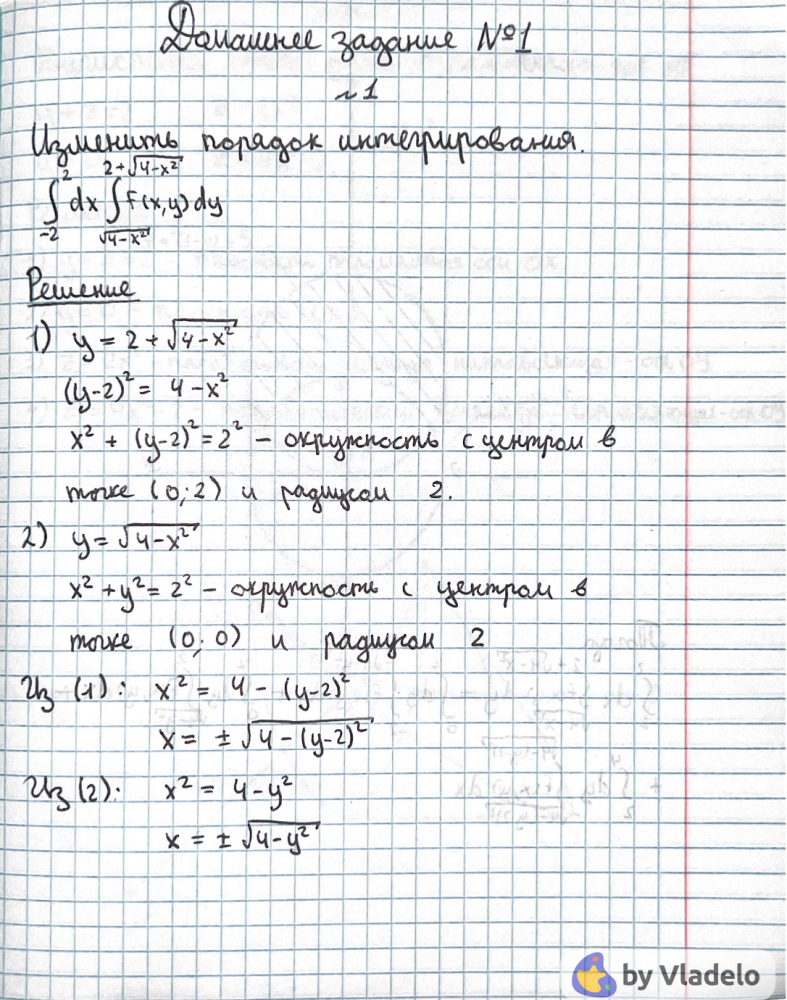 Домашнее задание №1
~1
Изменить порядок интегрирования.
∫_{-2}^{2} dx ∫_{√(4-x²)}^{2+√(4-x²)} F(x,y) dy
Решение
1) y = 2 + √(4-x²)
(y-2)² = 4-x²
x² + (y-2)² = 2² - окружность с центром в
точке (0; 2) и радиусом 2.
2) y = √(4-x²)
x² + y² = 2² - окружность с центром в
точке (0; 0) и радиусом 2
Из (1): x² = 4 - (y-2)²
x = ± √(4-(y-2)²)
Из (2): x² = 4-y²
x = ± √(4-y²)
by Vladelo